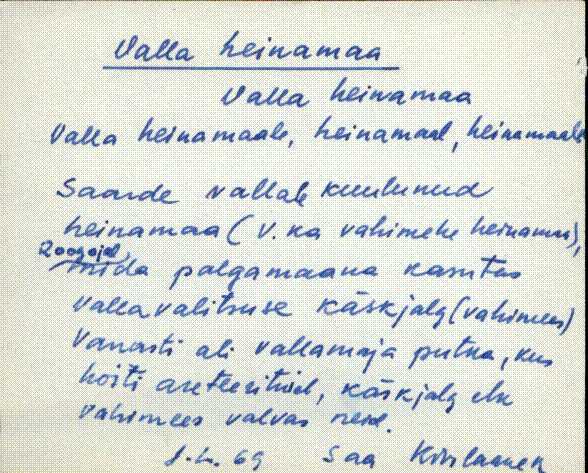 Valla heinamaa
Valla heinamaa
Valla heinamaale, heinamaal, heinamaale
Saarde vallale kuulunud
heinamaa (v. ka vahimehe heinamaa),
Roogojal,
mida palgamaana kasutas
vallavalitsuse käskjalg (vahimees)
Vanasti oli vallamaja putka, kus
hoiti areteeritud, käskjalg ehk
vahimees valvas neid.
69 Saa